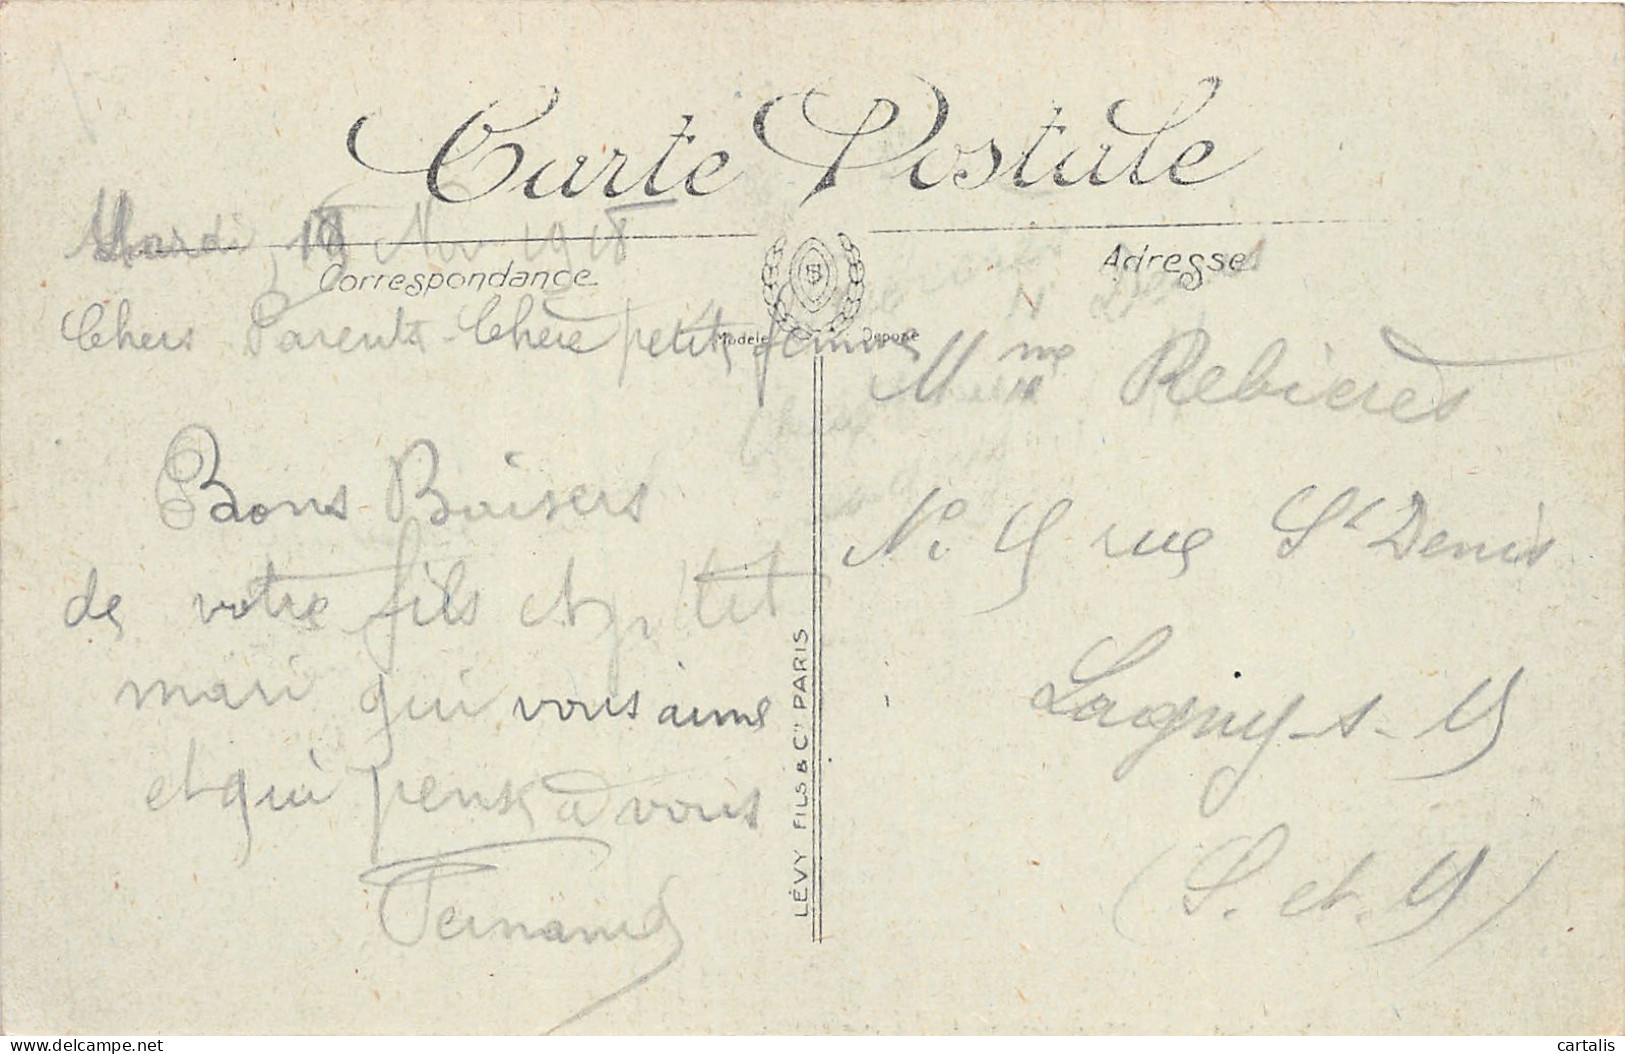 Carte Postale
Mardi, Nov 1918
Correspondance
Adresse
Chers Parents - Chère petite femme
Modèle Déposé
Bons Baisers
de votre fils et petit
mari qui vous aime
et qui pense à vous
Fernand
LÉVY FILS & Cie PARIS
Mme Rebières
No 9 rue St Denis
Lagny-s-M
(S. et. M)
delcampe.net
cartalis